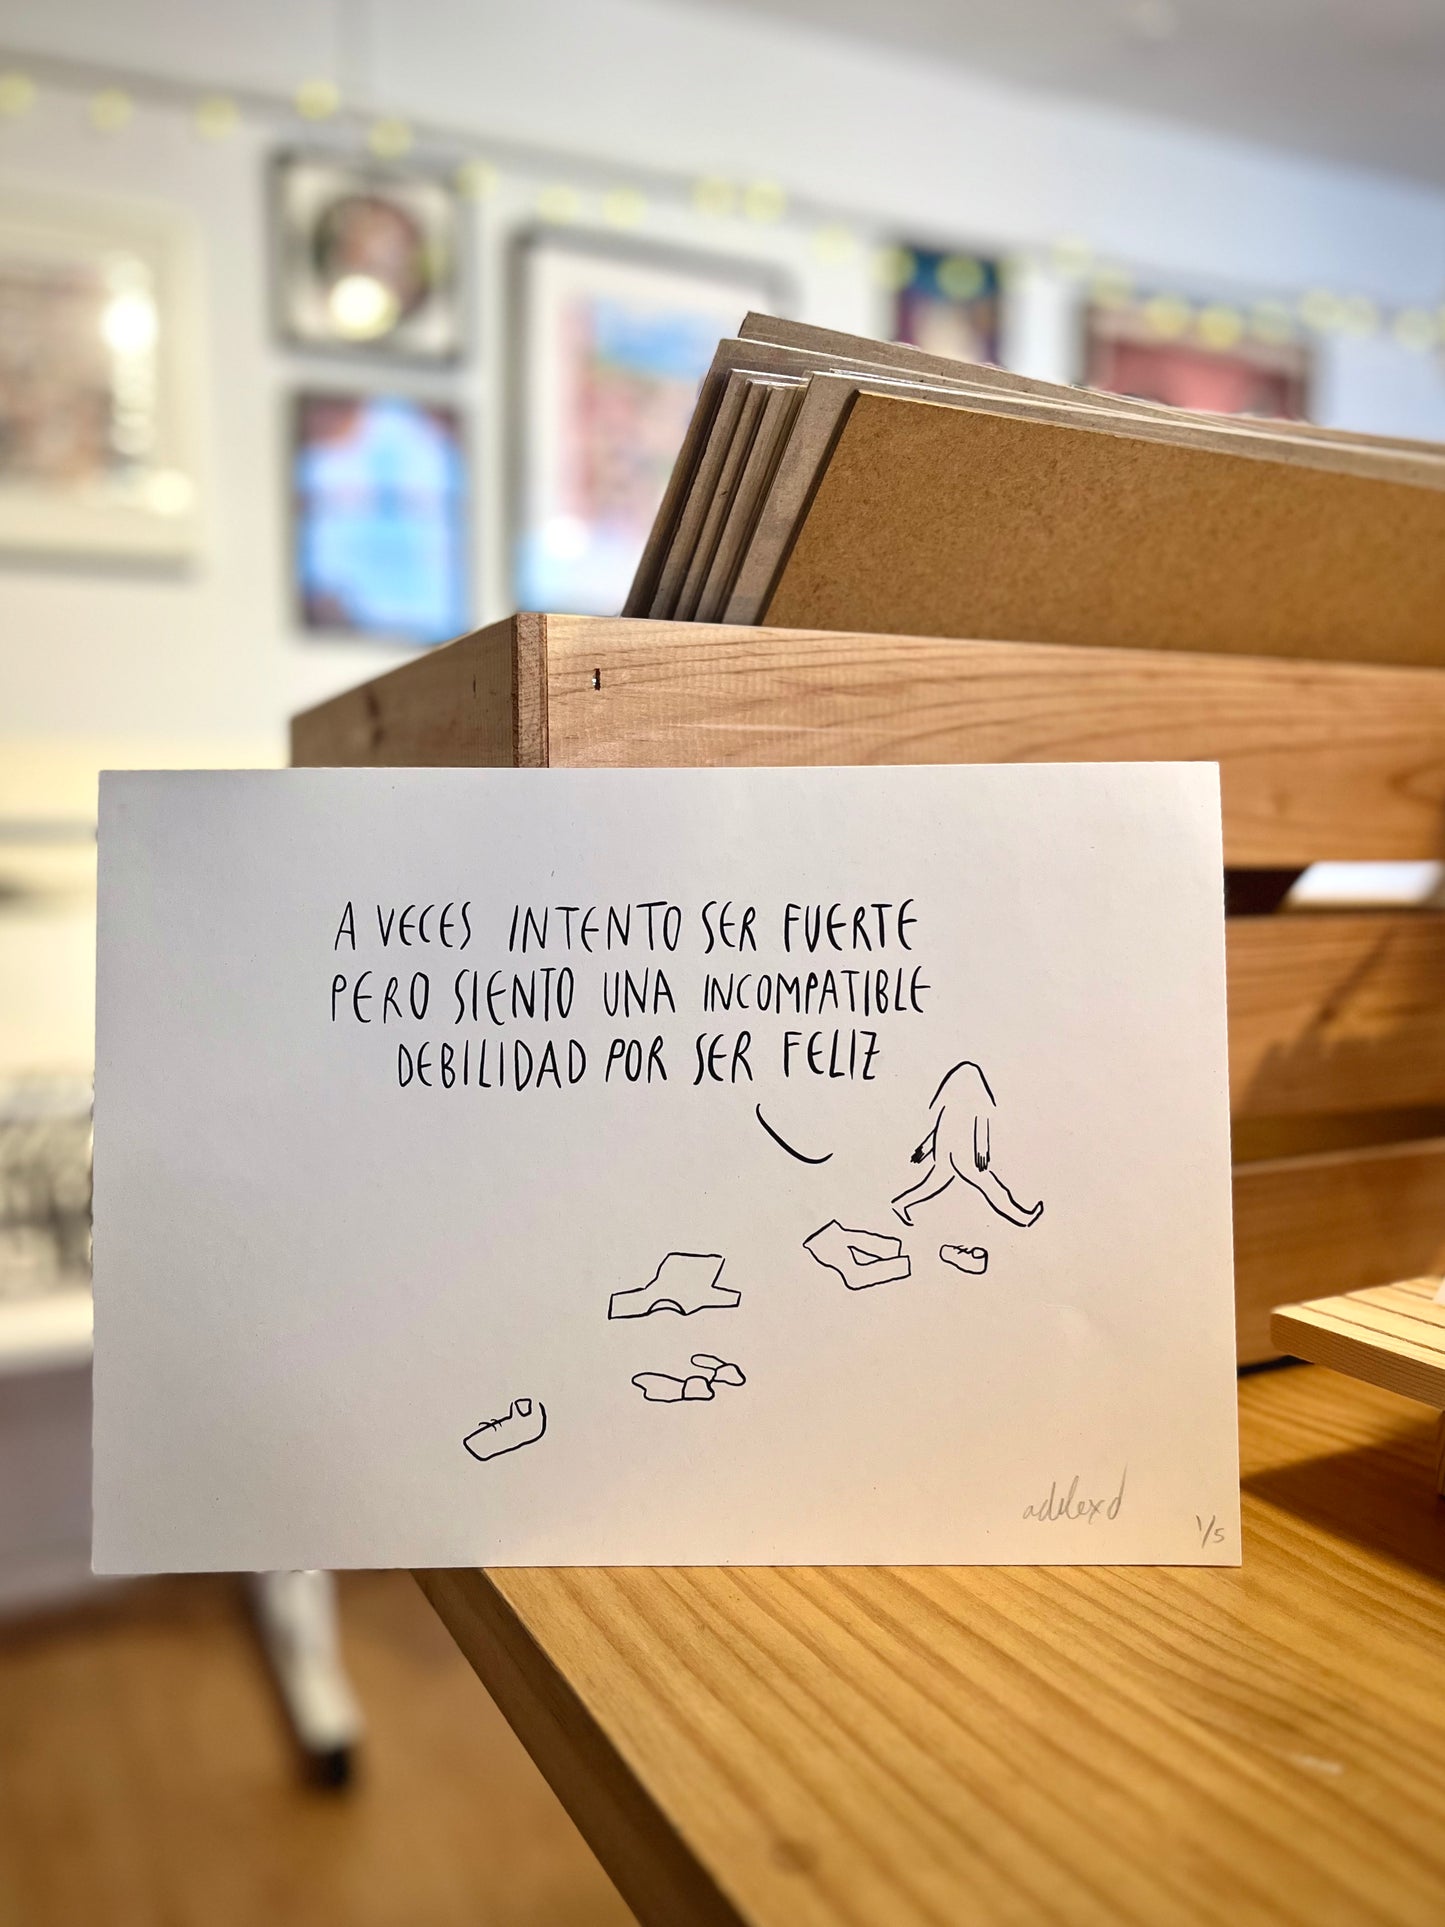 A VECES INTENTO SER FUERTE
PERO SIENTO UNA INCOMPATIBLE
DEBILIDAD POR SER FELIZ
adelexd
1/5